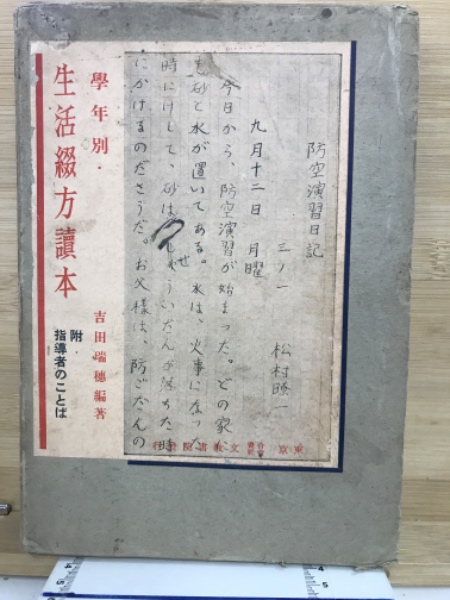 學年別・
生活綴方讀本
吉田瑞穗編著
附・
指導者のことば
防空演習日記
三ノ一 松村
九月十二日 月曜
今日から、防空演習が始まった。どの家に
も砂と水が置いてある。水は、火事になった
時にけして、砂は、しょういだんが落ちた時
にかけるのださうだ。お父様は、防ごだんの
東京 文教書院發行